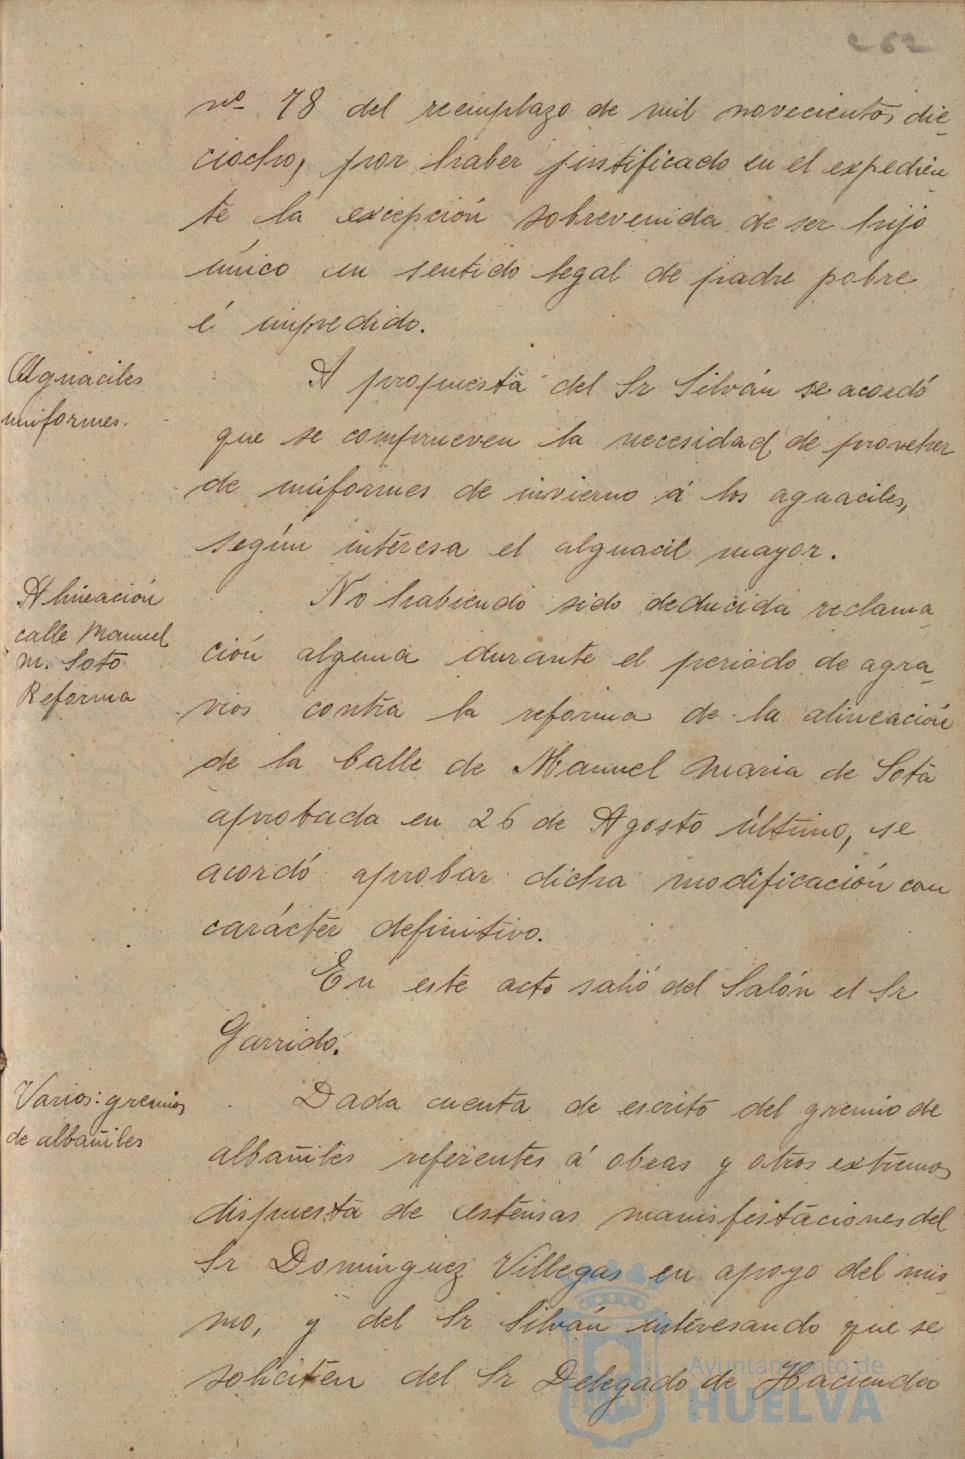 262
nº 78 del reemplazo de mil novecientos die-
ciocho, por haber justificado en el expedien-
te la excepción sobrevenida de ser hijo
único en sentido legal de padre pobre
é impedido.
Alguaciles
uniformes.
A propuesta del Sr Silván se acordó
que se comprueven la necesidad de proveher
de uniformes de invierno á los aguaciles,
según interesa el alguacil mayor.
Alineación
calle Manuel
M. Soto
Reforma
No habiendo sido deducida reclama
ción alguna durante el periodo de agra-
vios contra la reforma de la alineación
de la Calle de Manuel Maria de Soto
aprobada en 26 de Agosto último, se
acordó aprobar dicha modificación con
carácter definitivo.
En este acto salió del Salón el Sr
Garrido.
Varios: gremios
de albañiles
Dada cuenta de escrito del gremio de
albañiles referentes á obras y otros extremos
dispuesta de estensas manisfestaciones del
Sr Dominguez Villegas en apoyo del mis-
mo, y del Sr Silván interesando que se
soliciten del Sr Delegado de Hacienda
Ayuntamiento de
HUELVA